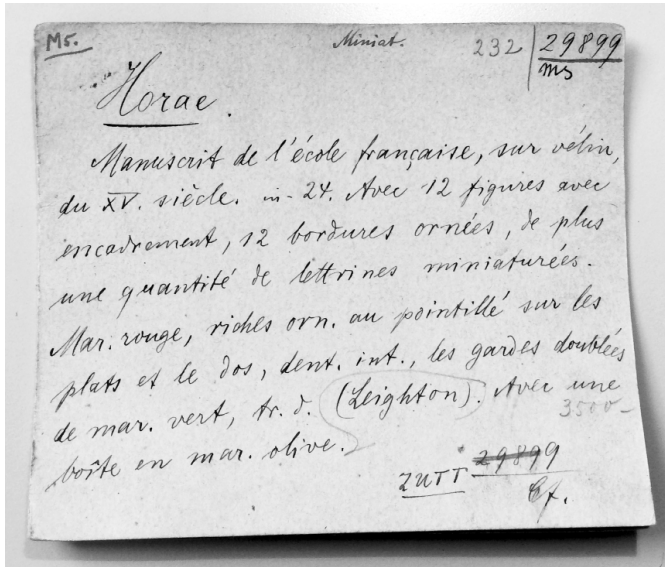 Ms. Miniat. 232 29899
ms
Horae.
Manuscrit de l'école française, sur vélin,
du XV. siècle. in-24. Avec 12 figures avec
encadrement, 12 bordures ornées, de plus
une quantité de lettrines miniaturées.
Mar. rouge, riches orn. au pointillé sur les
plats et le dos, dent. int., les gardes doublées
de mar. vert, tr. d. (Leighton). Avec une
3500-
boîte en mar. olive.
29899
ZUTT